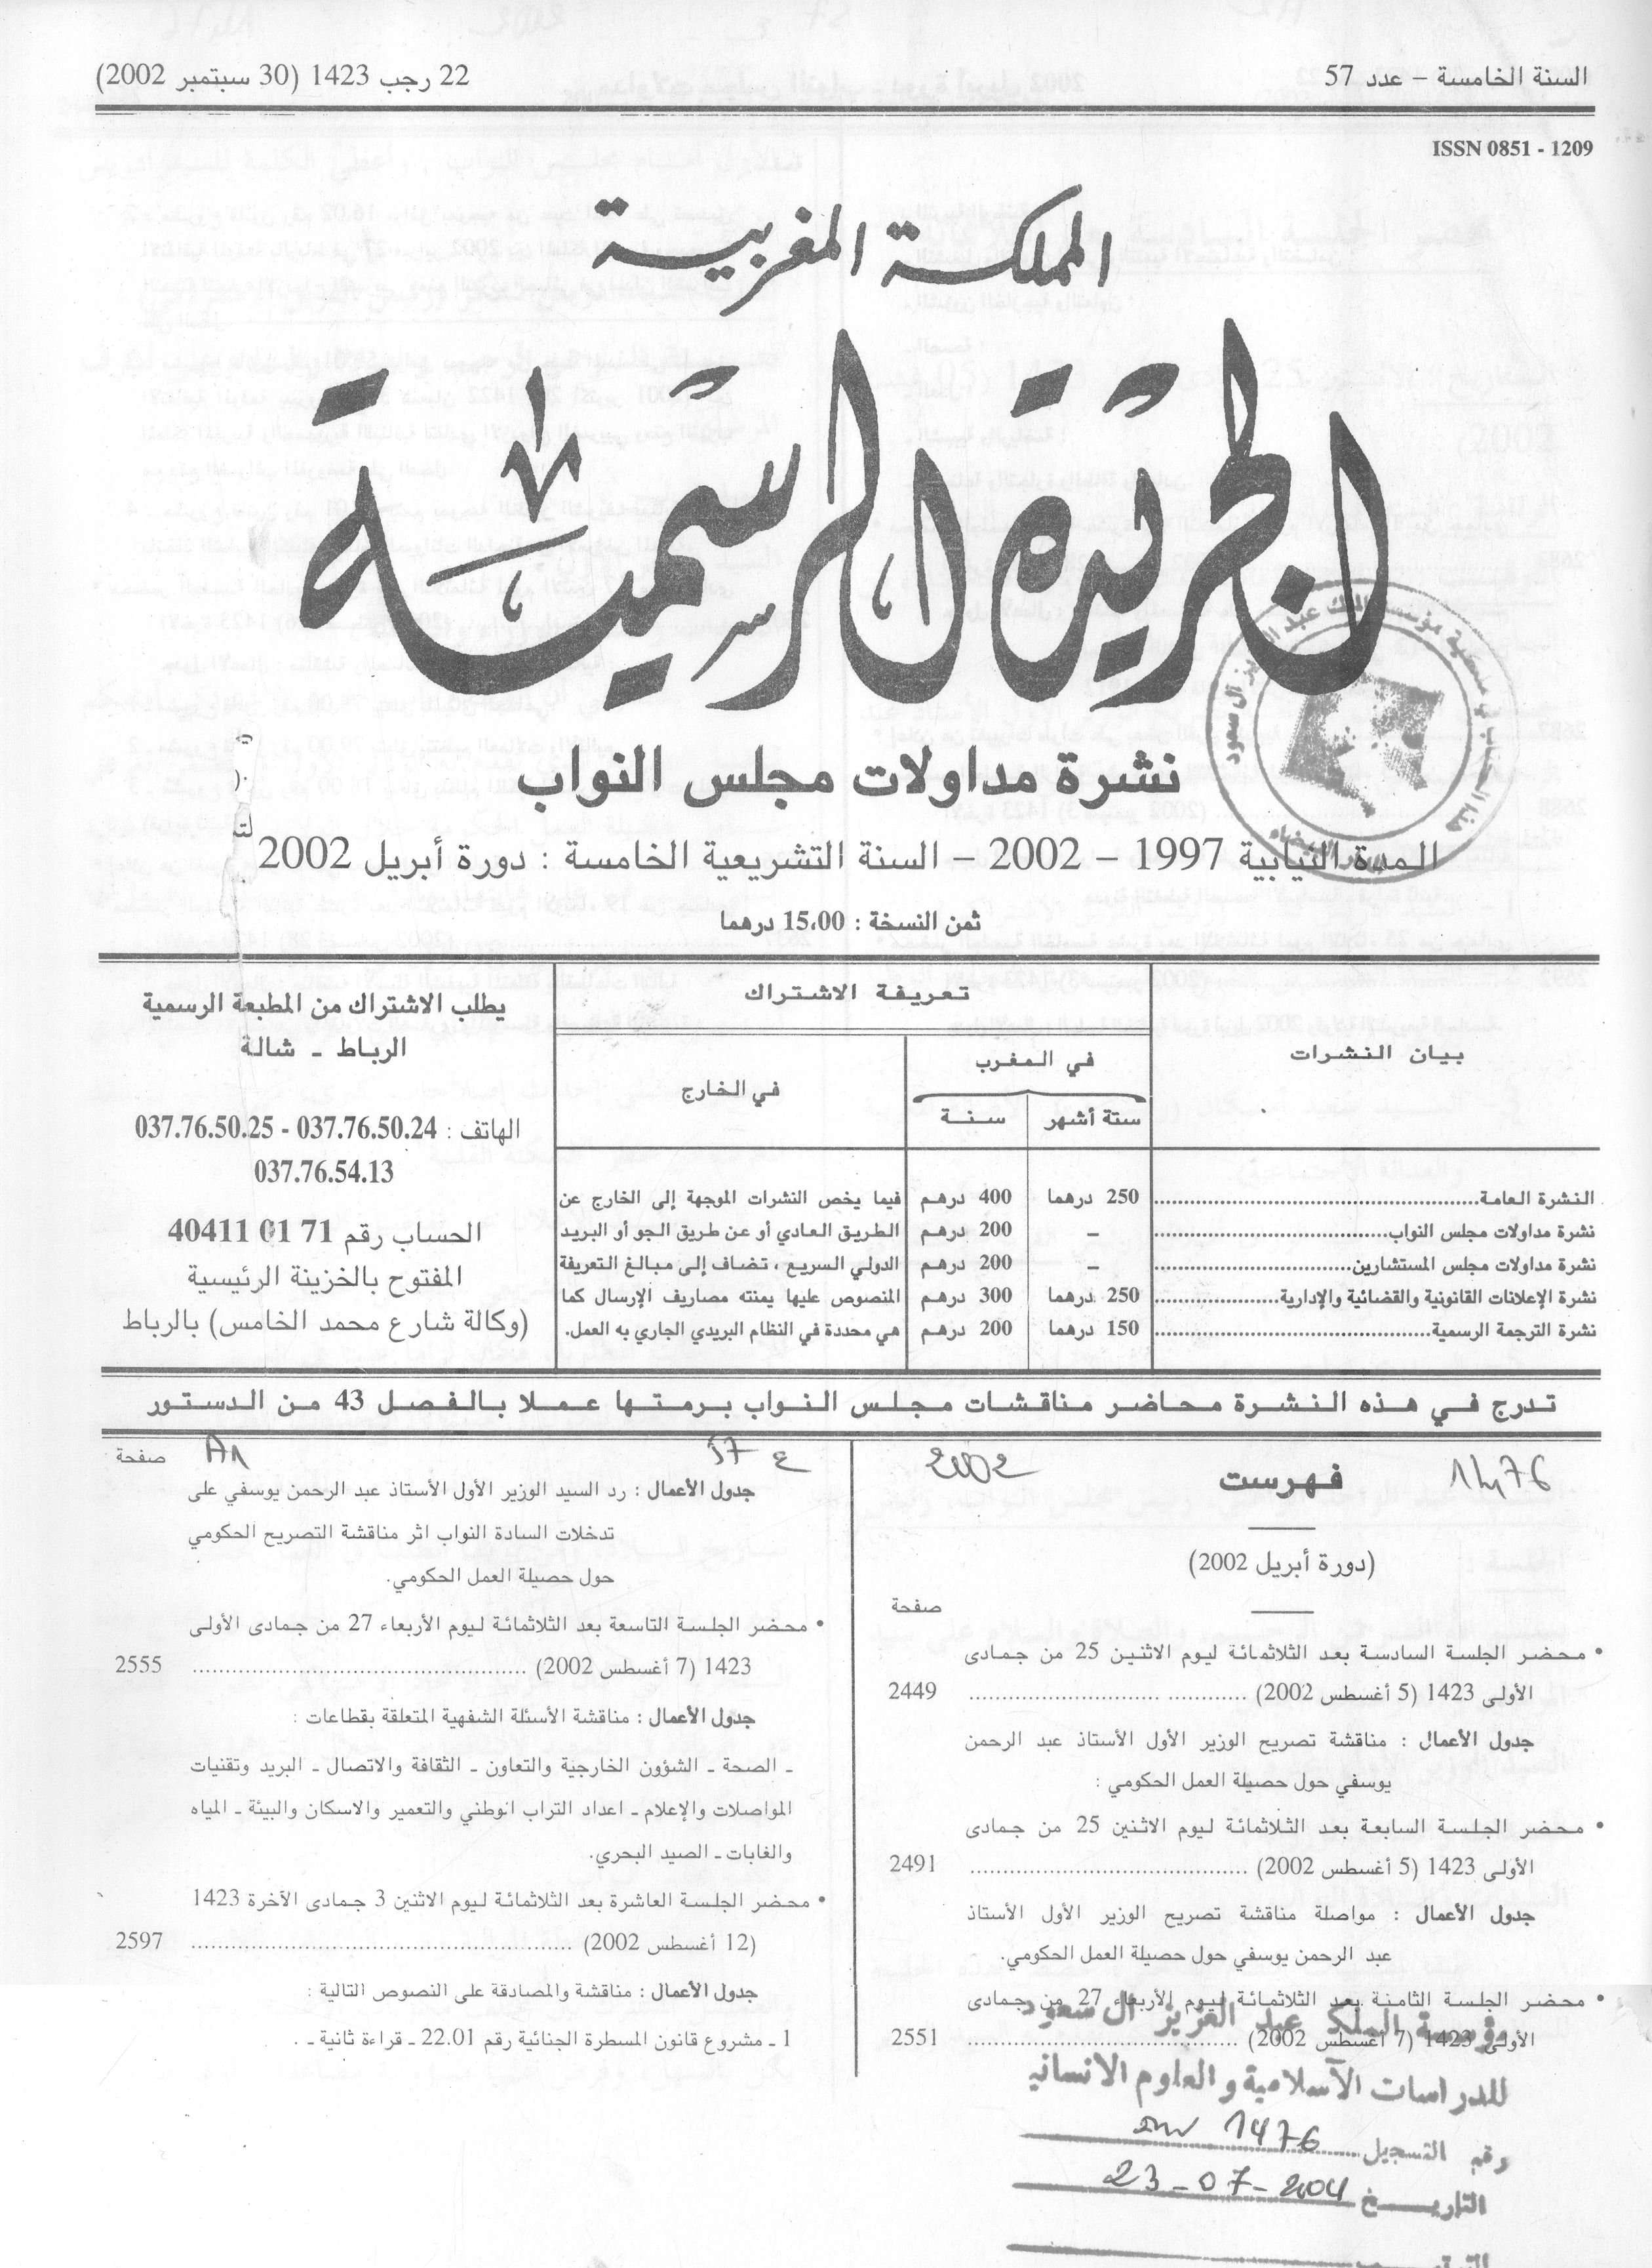 السنة الخامسة – عدد 57
22 رجب 1423 (30 سبتمبر 2002)
ISSN 0851 - 1209
المملكة المغربية
الجريدة الرسمية
نشرة مداولات مجلس النواب
المدة النيابية 1997 – 2002 – السنة التشريعية الخامسة : دورة أبريل 2002
ثمن النسخة : 15،00 درهما
بيان النشرات
تعريفة الاشتراك
في المغرب
في الخارج
ستة أشهر
سنة
النشرة العامة 250 درهما 400 درهم
نشرة مداولات مجلس النواب – 200 درهم
نشرة مداولات مجلس المستشارين – 200 درهم
نشرة الإعلانات القانونية والقضائية والإدارية 250 درهما 300 درهم
نشرة الترجمة الرسمية 150 درهما 200 درهم
فيما يخص النشرات الموجهة إلى الخارج عن
الطريق العادي أو عن طريق الجو أو البريد
الدولي السريع ، تضاف إلى مبالغ التعريفة
المنصوص عليها يمنته مصاريف الإرسال كما
هي محددة في النظام البريدي الجاري به العمل.
يطلب الاشتراك من المطبعة الرسمية
الرباط ـ شالة
الهاتف : 037.76.50.24 - 037.76.50.25
037.76.54.13
الحساب رقم 71 01 40411
المفتوح بالخزينة الرئيسية
(وكالة شارع محمد الخامس) بالرباط
تدرج في هذه النشرة محاضر مناقشات مجلس النواب برمتها عملا بالفصل 43 من الدستور
1476
2002
ع 57
A1
فهرست
(دورة أبريل 2002)
صفحة
• محضر الجلسة السادسة بعد الثلاثمائة ليوم الاثنين 25 من جمادى
الأولى 1423 (5 أغسطس 2002) 2449
جدول الأعمال : مناقشة تصريح الوزير الأول الأستاذ عبد الرحمن
يوسفي حول حصيلة العمل الحكومي :
• محضر الجلسة السابعة بعد الثلاثمائة ليوم الاثنين 25 من جمادى
الأولى 1423 (5 أغسطس 2002) 2491
جدول الأعمال : مواصلة مناقشة تصريح الوزير الأول الأستاذ
عبد الرحمن يوسفي حول حصيلة العمل الحكومي.
• محضر الجلسة الثامنة بعد الثلاثمائة ليوم الأربعاء 27 من جمادى
الأولى 1423 (7 أغسطس 2002) 2551
صفحة
جدول الأعمال : رد السيد الوزير الأول الأستاذ عبد الرحمن يوسفي على
تدخلات السادة النواب اثر مناقشة التصريح الحكومي
حول حصيلة العمل الحكومي.
• محضر الجلسة التاسعة بعد الثلاثمائة ليوم الأربعاء 27 من جمادى الأولى
1423 (7 أغسطس 2002) 2555
جدول الأعمال : مناقشة الأسئلة الشفهية المتعلقة بقطاعات :
ـ الصحة ـ الشؤون الخارجية والتعاون ـ الثقافة والاتصال ـ البريد وتقنيات
المواصلات والإعلام ـ اعداد التراب الوطني والتعمير والاسكان والبيئة ـ المياه
والغابات ـ الصيد البحري.
• محضر الجلسة العاشرة بعد الثلاثمائة ليوم الاثنين 3 جمادى الآخرة 1423
(12 أغسطس 2002) 2597
جدول الأعمال : مناقشة والمصادقة على النصوص التالية :
1 ـ مشروع قانون المسطرة الجنائية رقم 22.01 ـ قراءة ثانية ـ .
مؤسسة الملك عبد العزيز آل سعود
للدراسات الآسلامية والعلوم الانسانية
رقم التسجيل 1476
التاريخ 23-07-2004